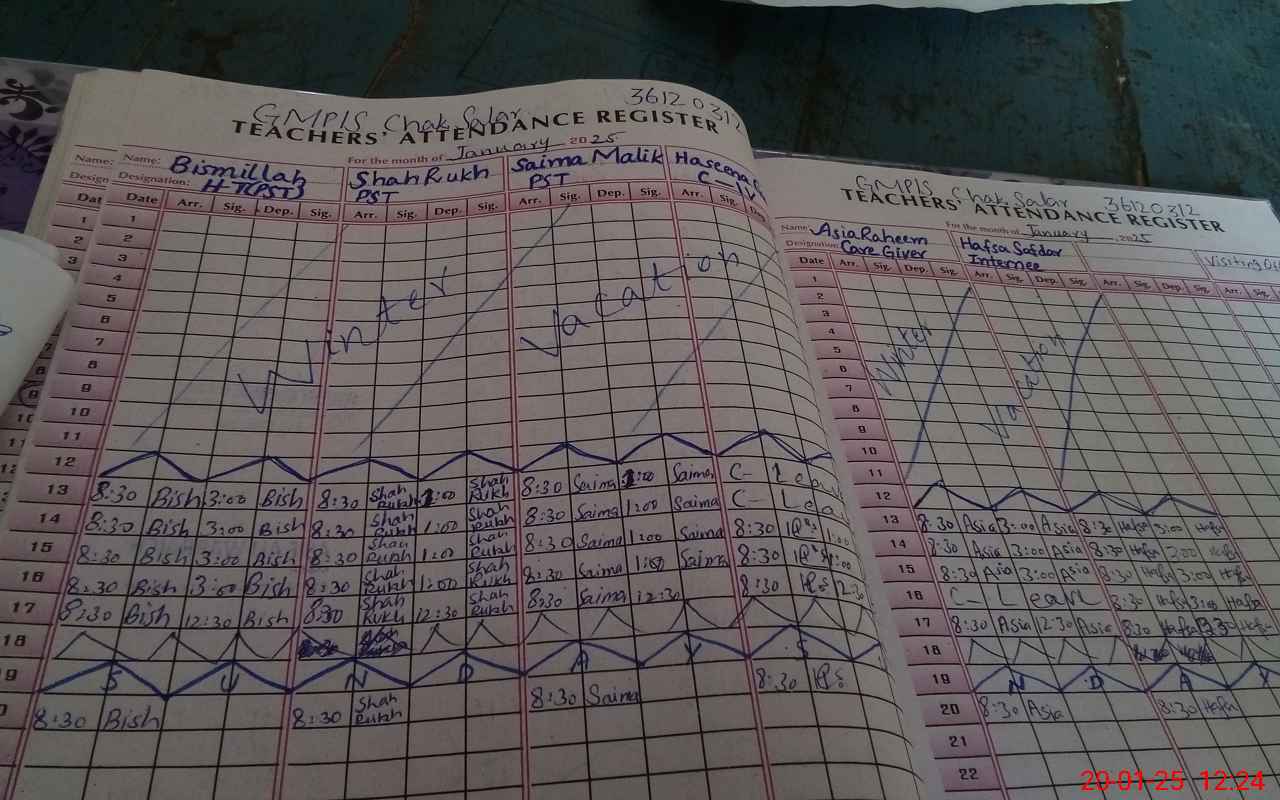 GMPIS Chak Salar 36120312
TEACHERS' ATTENDANCE REGISTER
For the month of January 2025
Name: Bismillah Shah Rukh Saima Malik Haseena
Designation: H-T(PST) PST PST C-IV
Date Arr. Sig. Dep. Sig. Arr. Sig. Dep. Sig. Arr. Sig. Dep. Sig. Arr. Sig. Dep.
1
2
3
4
5
6
7
8
9
10
11
Winter Vacation
12
13 8:30 Bish 3:00 Bish 8:30 Shah Rukh 1:00 Shah Rukh 8:30 Saima 1:00 Saima C- Leave
14 8:30 Bish 3:00 Bish 8:30 Shah Rukh 1:00 Shah Rukh 8:30 Saima 1:00 Saima C- Lea
15 8:30 Bish 3:00 Bish 8:30 Shah Rukh 1:00 Shah Rukh 8:30 Saima 1:00 Saima 8:30 1:00
16 8:30 Bish 3:00 Bish 8:30 Shah Rukh 1:00 Shah Rukh 8:30 Saima 1:00 Saima 8:30 1:00
17 8:30 Bish 12:30 Bish 8:30 Shah Rukh 12:30 Shah Rukh 8:30 Saima 12:30 8:30 12:30
18
19 S U N D A Y S
8:30 Bish 8:30 Shah Rukh 8:30 Saima 8:30
GMPIS Chak Salar 36120312
TEACHERS' ATTENDANCE REGISTER
For the month of January 2025
Name: Asia Raheem Hafsa Safdar
Designation: Care Giver Internee Visiting Off
Date Arr. Sig. Dep. Sig. Arr. Sig. Dep. Sig. Arr. Sig. Dep. Sig. Arr. Sig.
1
2
3
4
5
6
7
8
9
10
11
Winter Vacation
12
13 8:30 Asia 3:00 Asia 8:30 Hafsa 3:00 Hafsa
14 8:30 Asia 3:00 Asia 8:30 Hafsa 3:00 Hafsa
15 8:30 Asia 3:00 Asia 8:30 Hafsa 3:00 Hafsa
16 C- Leave 8:30 Hafsa 3:00 Hafsa
17 8:30 Asia 12:30 Asia 8:30 Hafsa 12:30 Hafsa
18
19 N D A Y
20 8:30 Asia 8:30 Hafsa
21
22
20-01-25 12.24